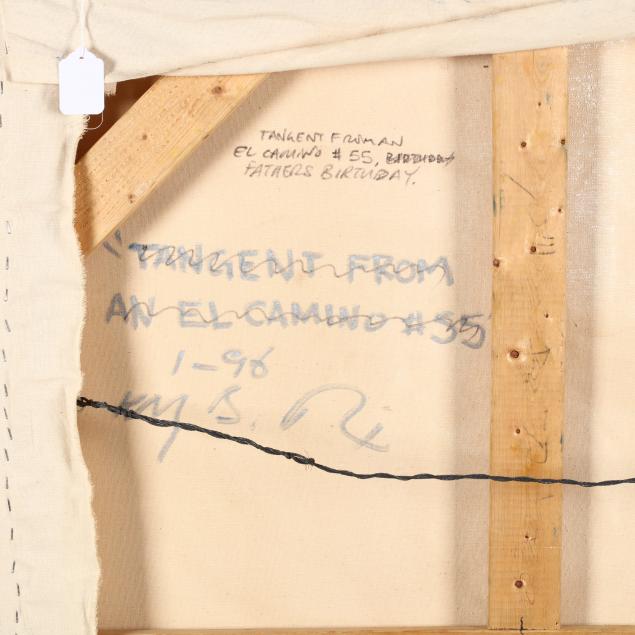 TANGENT FROM AN
EL CAMINO # 55, BIRTHDAY
FATHERS BIRTHDAY.
"TANGENT FROM
AN EL CAMINO # 55
1-96